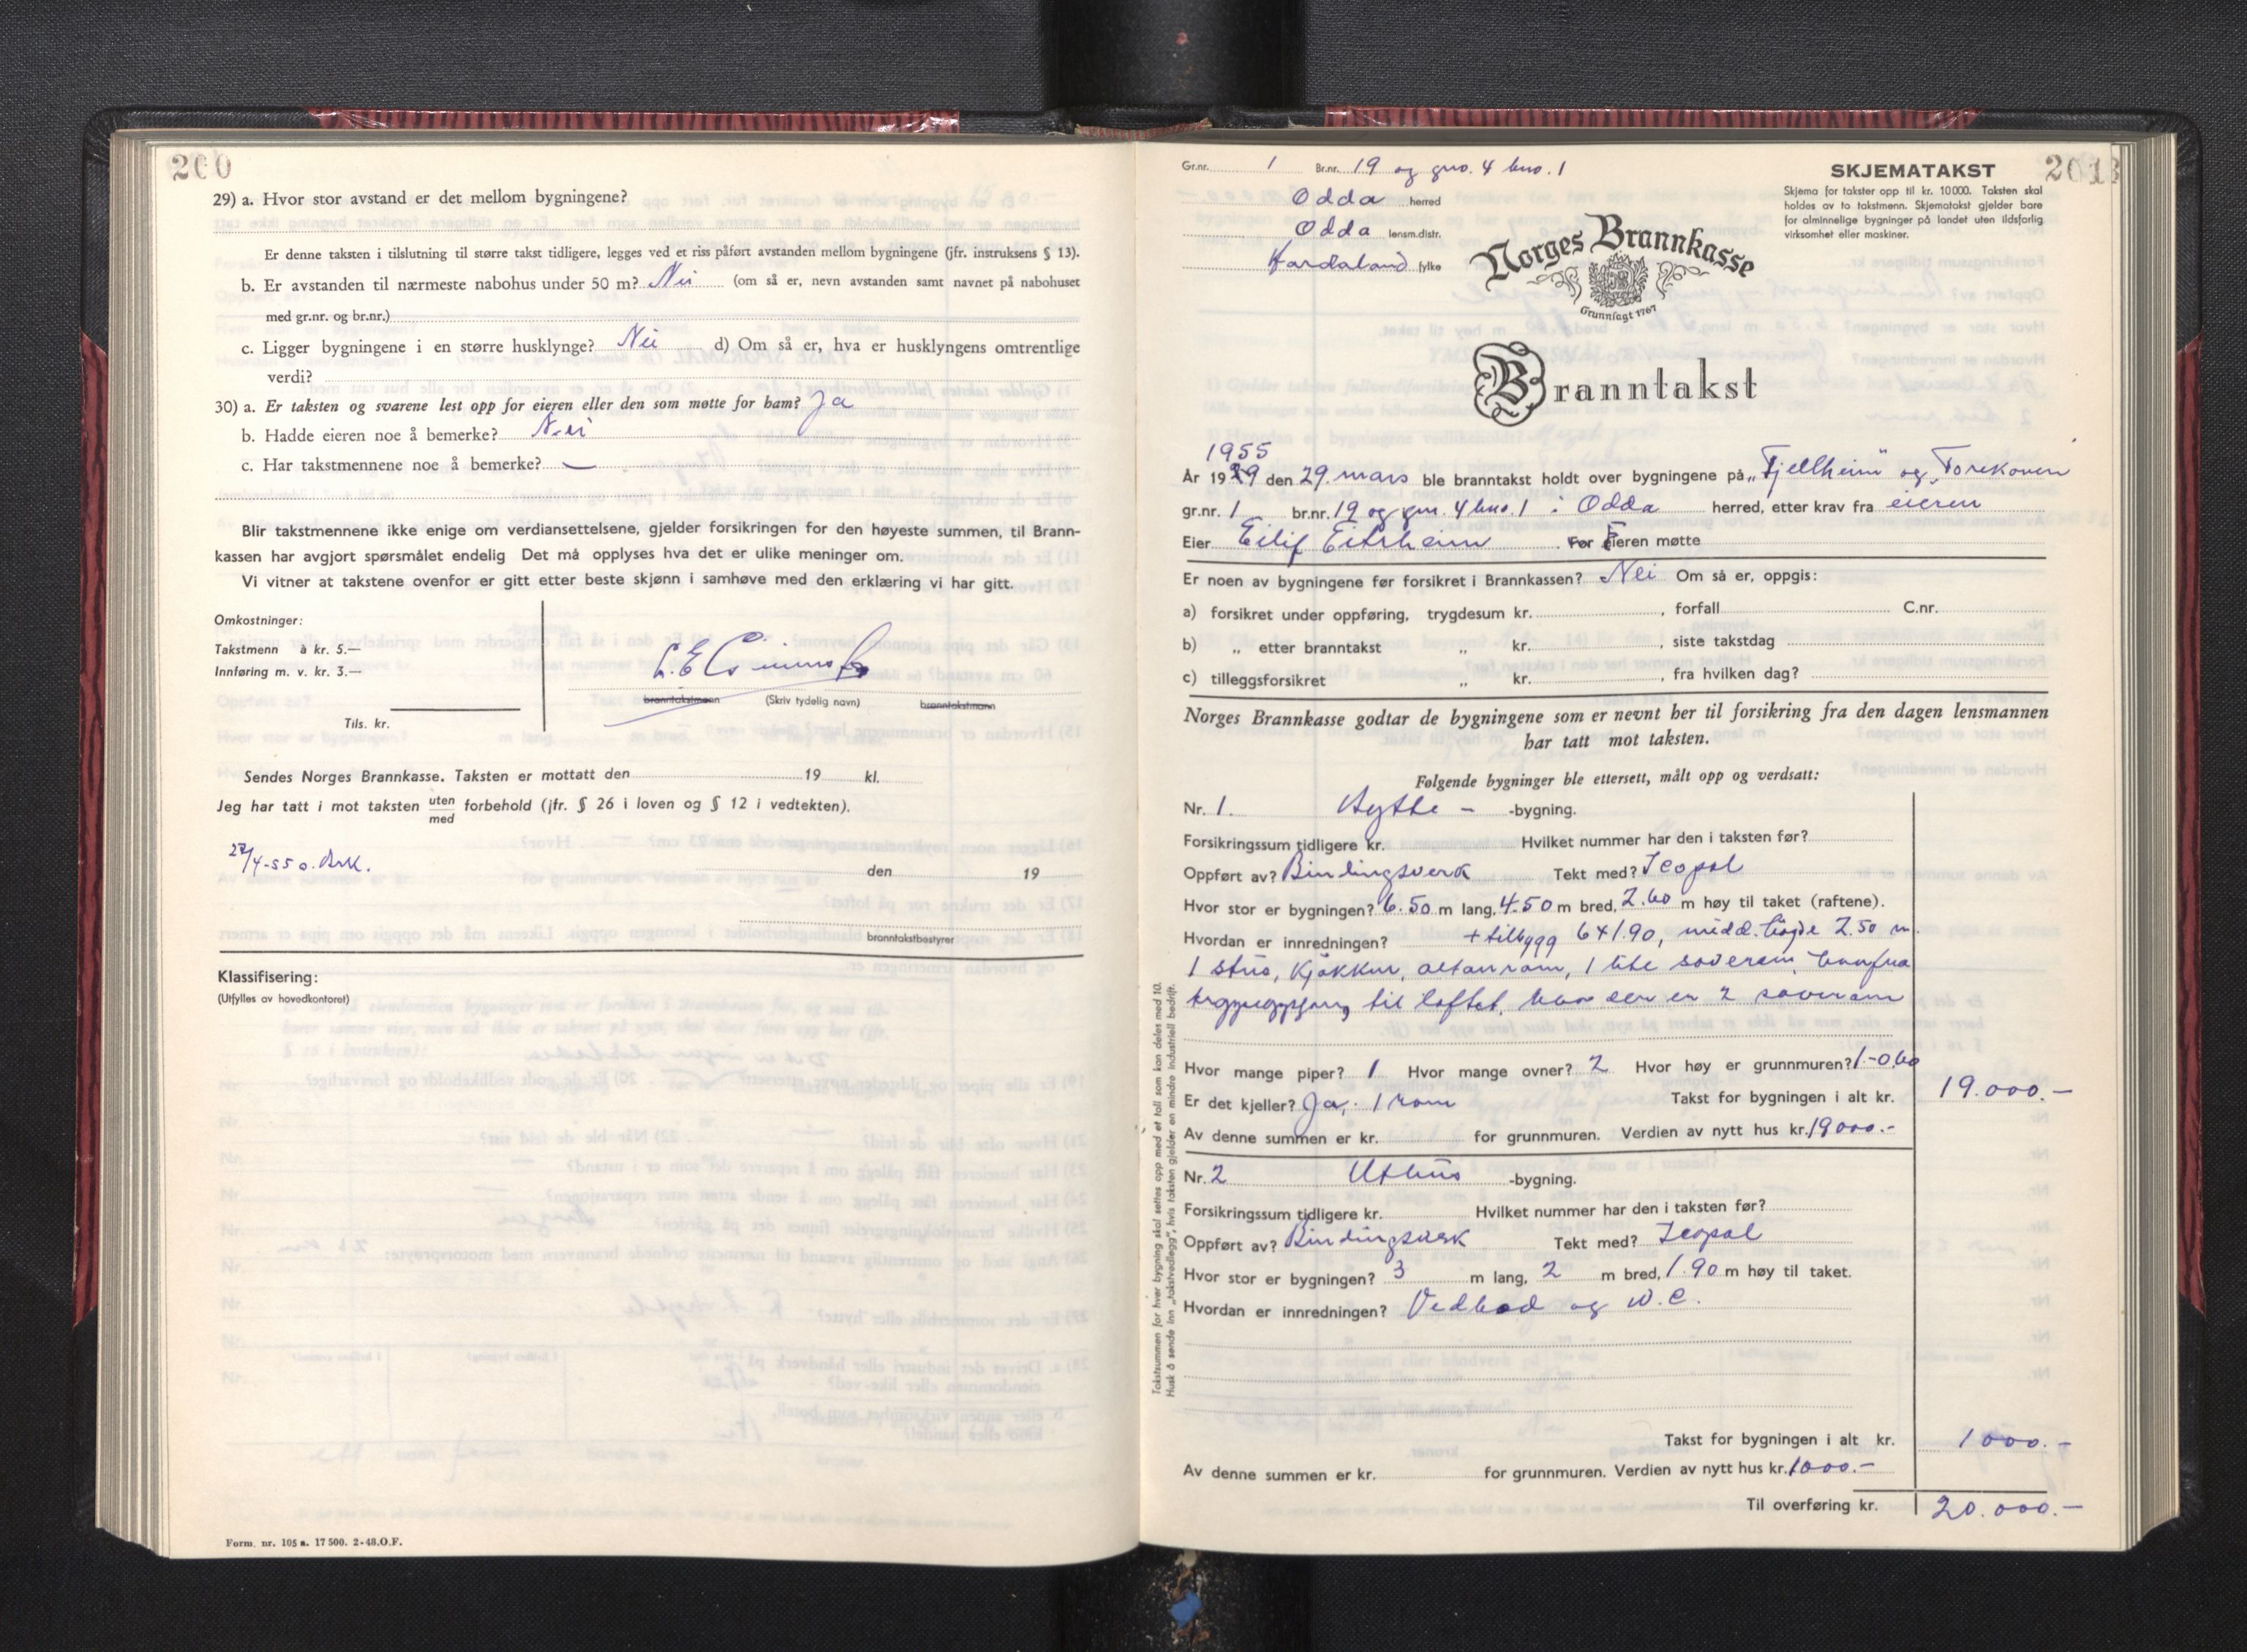 200
29) a. Hvor stor avstand er det mellom bygningene?
Er denne taksten i tilslutning til større takst tidligere, legges ved et riss påført avstanden mellom bygningene (jfr. instruksens § 13).
b. Er avstanden til nærmeste nabohus under 50 m? Nei (om så er, nevn avstanden samt navnet på nabohuset
med gr.nr. og br.nr.)
c. Ligger bygningene i en større husklynge? Nei d) Om så er, hva er husklyngens omtrentlige
verdi?
30) a. Er taksten og svarene lest opp for eieren eller den som møtte for ham? Ja
b. Hadde eieren noe å bemerke? Nei
c. Har takstmennene noe å bemerke? —
Blir takstmennene ikke enige om verdiansettelsene, gjelder forsikringen for den høyeste summen, til Brann-
kassen har avgjort spørsmålet endelig Det må opplyses hva det er ulike meninger om.
Vi vitner at takstene ovenfor er gitt etter beste skjønn i samhøve med den erklæring vi har gitt.
Omkostninger:
Takstmenn à kr. 5.—
Innføring m. v. kr. 3.—
Tils. kr.
branntakstmann (Skriv tydelig navn) branntakstmann
Sendes Norges Brannkasse. Taksten er mottatt den 19 kl.
Jeg har tatt i mot taksten uten forbehold (jfr. § 26 i loven og § 12 i vedtekten).
med
27/4-55 o.
den 19
branntakstbestyrer
Klassifisering:
(Utfylles av hovedkontoret)
Form. nr. 105 a. 17 500. 2-48.O.F.
Gr.nr. 1 Br.nr. 19 og gno. 4 bno. 1
Odda herred
Odda lensm.distr.
Hordaland fylke
SKJEMATAKST
201
Skjema for takster opp til kr. 10000. Taksten skal
holdes av to takstmenn. Skjematakst gjelder bare
for alminnelige bygninger på landet uten ildsfarlig
virksomhet eller maskiner.
Norges Brannkasse
Grunnlagt 1767
Branntakst
1955
År 1949 den 29. mars ble branntakst holdt over bygningene på „Fjellheim" og „Torekoven
gr.nr. 1 br.nr. 19 og gnr. 4 bno. 1 i Odda herred, etter krav fra eieren
Eier Eilif Eitrheim For Eieren møtte
Er noen av bygningene før forsikret i Brannkassen? Nei Om så er, oppgis:
a) forsikret under oppføring, trygdesum kr. , forfall C.nr.
b) „ etter branntakst „ kr. , siste takstdag
c) tilleggsforsikret „ kr. , fra hvilken dag?
Norges Brannkasse godtar de bygningene som er nevnt her til forsikring fra den dagen lensmannen
har tatt mot taksten.
Følgende bygninger ble ettersett, målt opp og verdsatt:
Nr. 1. Hytte - -bygning.
Forsikringssum tidligere kr. Hvilket nummer har den i taksten før?
Oppført av? Bindingsverk Tekt med? Icopal
Hvor stor er bygningen? 6.50 m lang, 4.50 m bred, 2.60 m høy til taket (raftene).
Hvordan er innredningen? + tilbygg 6x1.90, midd. høyde 2.50 m.
1 stue, kjøkken, altanrom, 1 lite soverom, herfra
trappeoppgang til loftet, hvor der er 2 soverom
Hvor mange piper? 1 Hvor mange ovner? 2 Hvor høy er grunnmuren? 1.-0.60
Er det kjeller? Ja, 1 rom Takst for bygningen i alt kr. 19.000.-
Av denne summen er kr. for grunnmuren. Verdien av nytt hus kr. 19000.-
Nr. 2 Uthus -bygning.
Forsikringssum tidligere kr. Hvilket nummer har den i taksten før?
Oppført av? Bindingsverk Tekt med? Icopal
Hvor stor er bygningen? 3 m lang, 2 m bred, 1.90 m høy til taket.
Hvordan er innredningen? Vedbod og W.C.
Takst for bygningen i alt kr. 1000.-
Av denne summen er kr. for grunnmuren. Verdien av nytt hus kr. 1000.-
Til overføring kr. 20.000.-
Takstsummen for hver bygning skal settes opp med et tall som kan deles med 10.
Husk å sende inn „takstvedlegg", hvis taksten gjelder en mindre industriell bedrift.